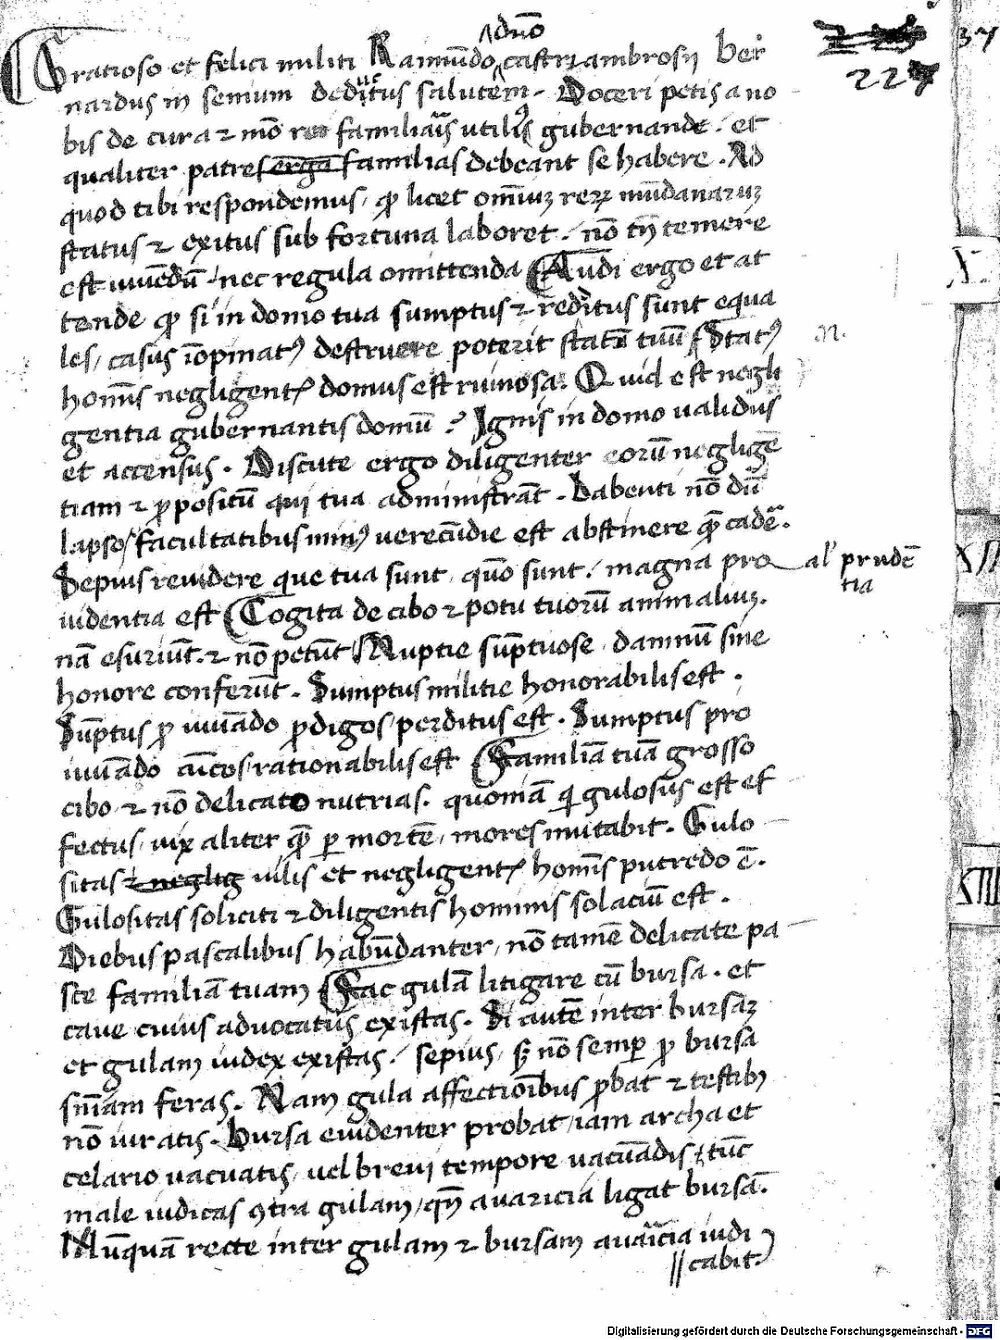 dnō
Gratioso et felici militi Raimūdo castri ambrosij Ber
nardus in senium deditus salutem. Doceri petis a no
bis de cura et mō rei familiaris utiliꝰ gubernande. et
qualiter patres erga familias debeant se habere. Ad
quod tibi respondemus, ꝙ licet omniuꝫ reꝝ mūdanaruꝫ
status et exitus sub fortuna laboret. nō tn̄ temere
est uiuēdū nec regula omittenda Audi ergo et at
tende ꝙ si in domo tua sumptus et redditus sunt equa
les, casus īopinatꝰ destruere poterit statū tuū Statꝰ
hoīs negligentis domus est ruinosa. Quid est negli
gentia gubernantis domū? Ignis in domo ualidus
et accensus. Discute ergo diligenter eorū negligē
tiam et ꝓpositū qui tua administrāt. Labenti nō dū
lapso facultatibus minꝰ uerecūdie est abstinere qꝫ cadē.
Sepius reuidere que tua sunt, quō sunt, magna pro
al' prudē
tia
uidentia est Cogita de cibo et potu tuorū animaliuꝫ.
nā esuriūt et nō petūt Nuptie sūptuose damnū sine
honore conferūt. Sumptus militie honorabilis est.
Sūptus ꝓ iuuādo ꝓdigos perditus est. Sumptus pro
iuuādo amicos rationabilis est Familiā tuā grosso
cibo et nō delicato nutrias. quoniā qi gulosus est ef
fectus, uix aliter qꝫ per mortē, mores mutabit. Gulo
sitas et neglig uilis et negligentis hoīs putredo ē.
Gulositas soliciti et diligentis hominis solaciū est.
Diebus pascalibus habūdanter, nō tamē delicate pa
sce familiā tuam Fac gulā litigare cū bursa. et
caue cuius aduocatus existas. Si autē inter bursaꝫ
et gulam iudex existas, sepius, sꝫ nō semper ꝓ bursa
sn̄iam feras. Nam gula affectionibus ꝓbat et testibꝫ
nō iuratis. Bursa euidenter probat, iam archa et
celario uacuatis, uel breui tempore uacuādis et tūc
male iudicas ꝯtra gulam, qn̄ auaricia ligat bursā.
Nūquā recte inter gulam et bursam auaricia iudi
cabit.
n.
227
37
X.
XII
XIII
Digitalisierung gefördert durch die Deutsche Forschungsgemeinschaft - DFG